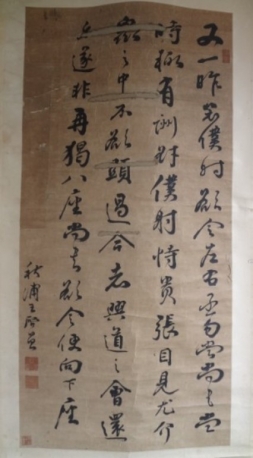 又一昨裴僕射欲令左右丞勾當尚書當
時輒有酬對僕射恃貴張目見尤介
衆之中不欲顯過今者興道之會還
尓遂非再猲八座尚書欲令便向下座
秋浦王